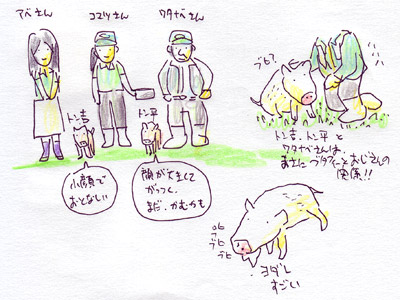 アベさん
コマツさん
ワタナベさん
トン吉
トン平
小顔で
おとなしい
顔が大きくて
がっつく。
まだ、かむかも
ブヒ?
トン吉、トン平と
ワタナベさんは
まさに ブタファーとおじさんの
関係!!
ブヒ
ブヒ
ブヒ
ヨダレ
すごい